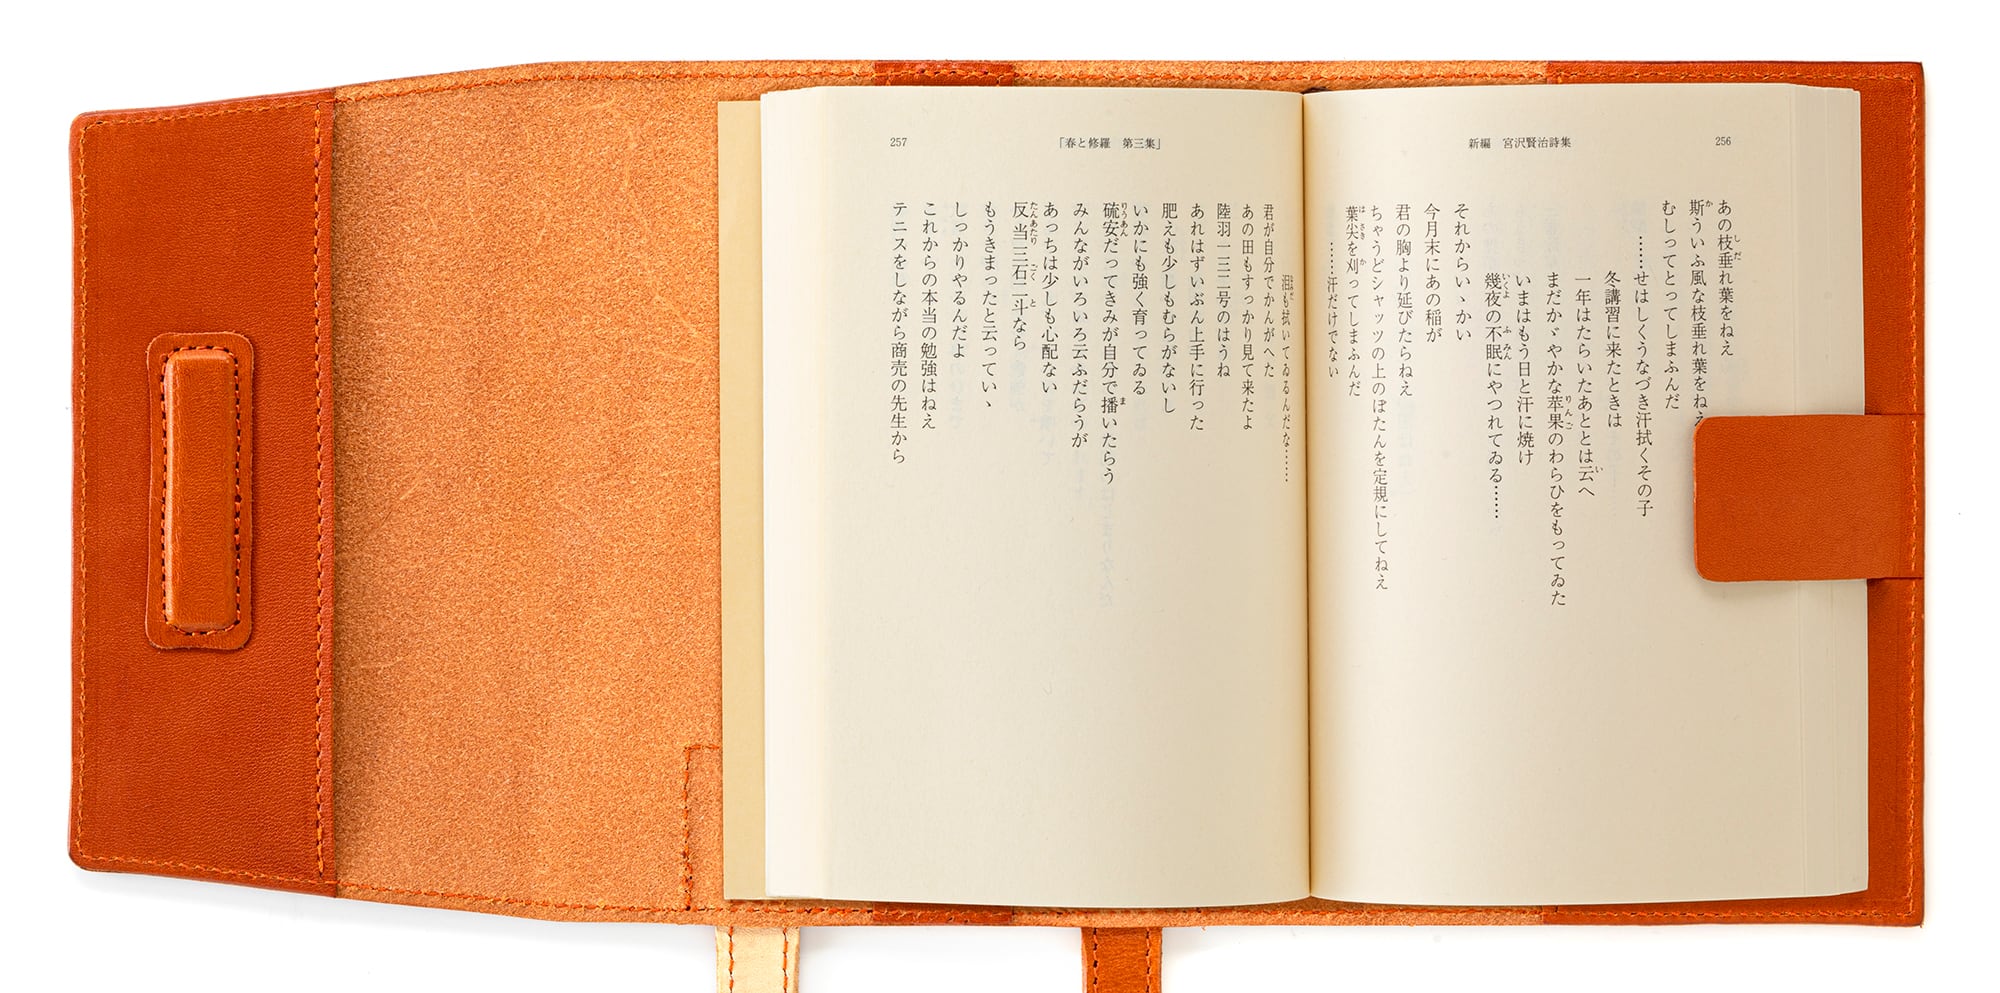 256
新編　宮沢賢治詩集
あの枝垂れ葉をねえ
斯ういふ風な枝垂れ葉をねえ
むしってとってしまふんだ
……せはしくうなづき汗拭くその子
冬講習に来たときは
一年はたらいたあととは云へ
まだかゞやかな苹果のわらひをもってゐた
いまはもう日と汗に焼け
幾夜の不眠にやつれてゐる……
それからいゝかい
今月末にあの稲が
君の胸より延びたらねえ
ちゃうどシャッツの上のぼたんを定規にしてねえ
葉尖を刈ってしまふんだ
……汗だけでない
「春と修羅　第三集」
257
泪も拭いてゐるんだな……
君が自分でかんがへた
あの田もすっかり見て来たよ
陸羽一三二号のはうね
あれはずいぶん上手に行った
肥えも少しもむらがないし
いかにも強く育ってゐる
硫安だってきみが自分で播いたらう
みんながいろいろ云ふだらうが
あっちは少しも心配ない
反当三石二斗なら
もうきまったと云っていゝ
しっかりやるんだよ
これからの本当の勉強はねえ
テニスをしながら商売の先生から